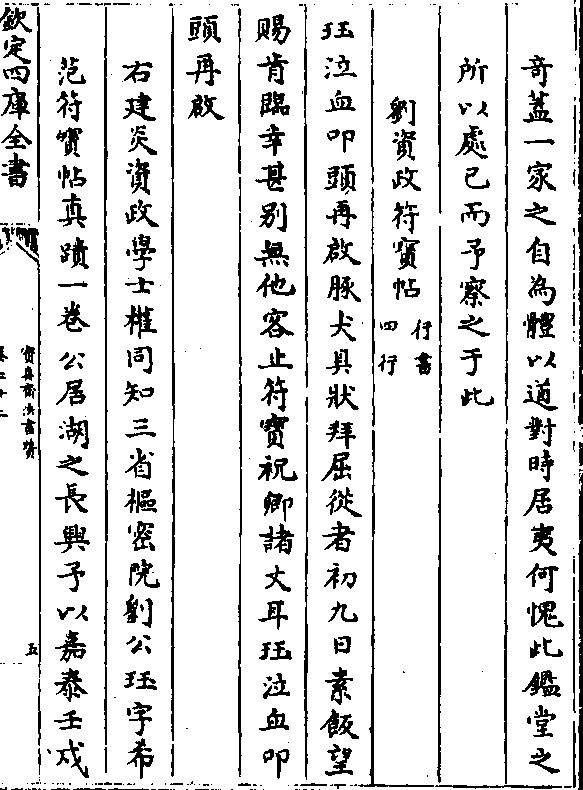 奇蓋一家之自為體以道對時居夷何愧此鑑堂之
所以處己而予察之于此
劉資政符寳帖 行書四行
珏泣血叩頭再啟豚犬具狀拜屈從者初九日素飯望
賜肯臨幸甚别無他客止符寳祝卿諸丈耳珏泣血叩
頭再啟
右建炎資政學士權同知三省樞密院劉公珏字希
范符寳帖真蹟一卷公居湖之長興予以嘉泰壬戌
欽定四庫全書
寳真齋法書贊
卷二十二
五